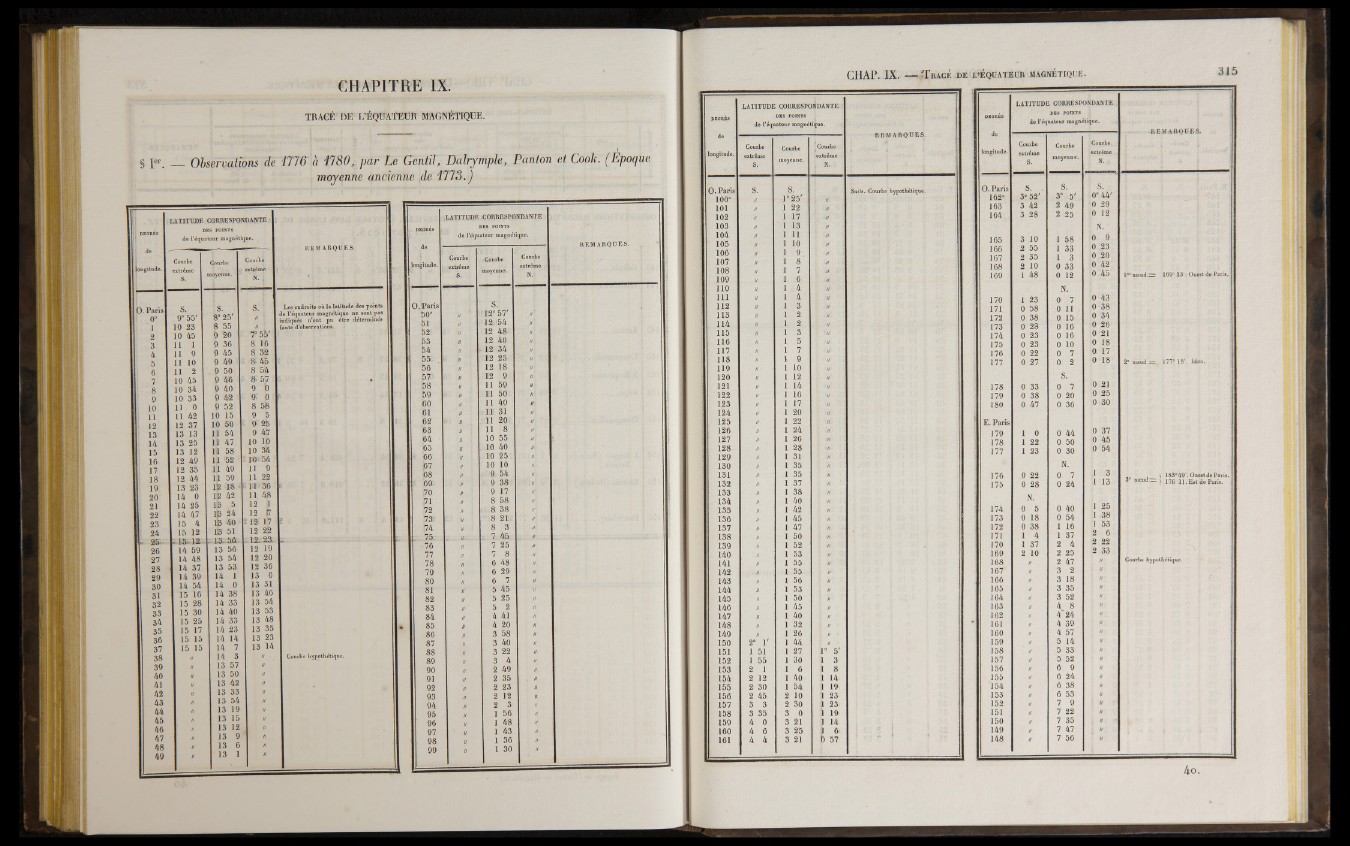 CHAPITRE IX.
TRACÉ DE L'ÉQUATEUR MAGNÉTIQUE.
§ 1er. — Observations de 1776 à 1780, par Le Gentil, Dalrymple, Panton et Cook. (Époque
moyenne ancienne de 1773.)
DEGRÉS de longitude.
LATITUDE CORRESPONDANTE
DES POINTS
de l'équateur magnétique.
Courbe extrême S.
Courbe moyenne.
Courbe extrême N.
REMARQUES.
O. Paris S. S. S.
0° 9° 55' 8° 25' "
1 10 23 8 55 "
2 10 45 9 20 7° 55'
3 11 1 9 36 8 16
4 11 9 9 45 8 32
5 11 10 9 49 8 45
6 11 2 9 50 8 54
7 10 45 9 46 8 57
8 10 34 9 40 9 0
9 10 33 9 42 9 0
10 11 0 9 52 8 58
11 11 42 10 15 9 5
12 12 37 10 50 9 25
13 13 13 11 54 9 47
14 13 25 11 47 10 10
15 13 12 11 58 10 34
16 12 49 11 52 10 54
17 12 35 11 49 11 9
18 12 44 11 59 11 22
19 13 23 12 18 11 36
20 14 0 12 42 11 48
21 14 25 13 5 12 1
22 14 47 13 24 12
23 15 4 13 40 12 17
24 15 12 13 51 12 22
25 15 12 13 56 12 23
26 14 59 13 56 12 19
27 14 48 13 54 12 20
28 14 37 13 53 12 36
29 14 39 14 1 13 6
30 14 54 14 0 13 31
31 15 16 14 38 13 46
32 15 28 14 35 13 54
33 15 30 14 40 13 53
34 15 25 14 33 13 48
35 15 17 14 23 13 35
36 15 15 14 14 13 23
37 15 15 14 7 13 14
38 " 14 3 "
39 " 13 57 "
40 " 13 50 "
41 " 13 42 "
42 " 13 33 "
43 " 13 54 "
44 " 13 19 "
45 " 13 15 "
46 " 13 12 "
47 " 13 9 "
48 " 13 6 "
49 " 13 1 "
Les endroits où la latitude des points
de l'équateur magnétique ne sont pas
indiqués n'ont pu être déterminés
faute d'observations.
Courbe hypothétique.
DEGRÉS de longitude.
LATITUDE CORRESPONDANTE
DES POINTS
de l'équateur magnétique.
Courbe extrême S.
Courbe moyenne.
Courbe extrême N.
REMARQUES.
O. Paris S.
50° " 12° 57' "
51 " 12 54 "
52 " 12 48 "
53 " 12 40 "
54 " 12 34 "
55 " 12 23 "
56 " 12 18 "
57 " 12 9 "
58 " 11 59 "
59 " 11 50 "
60 " 11 40 "
61 " 11 31 "
62 " 11 20 "
63 " 11 8 "
64 " 10 55 "
65 " 10 40 "
66 " 10 25 "
67 " 10 10 "
68 " 9 54 "
69 " 9 38 "
70 " 9 17 "
71 " 8 58 "
72 " 8 38 "
73 " 8 21 "
74 " 8 3 "
75 " 7 45 "
76 " 7 25 "
77 " 7 8 "
78 " 6 48 "
79 " 6 29 "
80 " 6 7 "
81 " 5 45 "
82 " 5 25 "
83 " 5 2 "
84 " 4 41 "
85 " 4 20 "
86 " 3 58 "
87 " 3 40 "
88 " 3 22 "
89 " 3 4 "
90 " 2 49 "
91 " 2 35 "
92 " 2 23 "
93 " 2 12 "
94 " 2 3 "
95 " 1 56 "
96 " 1 48 "
97 " 1 43 "
98 " 1 36 "
99 " 1 30 "
CHAP. IX. — TRACÉ DE L'ÉQUATEUR MAGNÉTIQUE. 315
DEGRÉS de longitude.
LATITUDE CORRESPONDANTE
DES POINTS
de l'équateur magnétique.
Courbe extrême S.
Courbe moyenne.
Courbe extrême N.
REMARQUES.
O. Paris S. S.
100° " 1° 25' "
101 " 1 22 "
102 " 1 17 "
103 " 1 13 "
104 " 1 11 "
105 " 1 10 "
106 " 1 9 "
107 " 1 8 "
108 " 1 7 "
109 " 1 6 "
110 " 1 4 "
111 " 1 4 "
112 " 1 3 "
113 " 1 2 "
114 " 1 2 "
115 " 1 3 "
116 " 1 5 "
117 " 1 7 "
118 " 1 9 "
119 " 1 10 "
120 " 1 12 "
121 " 1 14 "
122 " 1 16 "
123 " 1 17 "
124 " 1 20 "
125 " 1 22 "
126 " 1 24 "
127 " 1 26 "
128 " 1 28 "
129 " 1 31 "
130 " 1 35 "
131 " 1 35 "
132 " 1 37 "
133 " 1 38 "
134 " 1 40 "
135 " 1 42 "
136 " 1 45 "
137 " 1 47 "
138 " 1 50 "
139 " 1 52 "
140 " 1 53 "
141 " 1 55 "
142 " 1 55 "
143 " 1 56 "
144 " 1 53 "
145 " 1 50 "
146 " 1 45 "
147 " 1 40 "
148 " 1 32 "
149 " 1 26 "
150 2° 1' 1 44 "
151 1 51 1 27 1° 5'
152 1 55 1 30 1 3
153 2 1 1 6 1 8
154 2 12 1 40 1 14
155 2 30 1 54 1 19
156 2 45 2 10 1 23
157 3 3 2 30 1 23
158 3 35 3 0 1 19
159 4 0 3 21 1 14
160 4 6 3 25 1 6
161 4 4 3 21 0 57
Suite. Courbe hypothétique.
DEGRÉS de longitude.
LATITUDE CORRESPONDANTE
DES POINTS
de l'équateur magnétique.
Courbe extrême S.
Courbe moyenne.
Courbe extrême N.
REMARQUES.
O. Paris S. S. S.
162° 3° 52' 3° 5' 0° 44'
163 3 42 2 49 0 29
164 3 28 2 25 0 12
N.
165 3 10 1 58 0 9
166 2 55 1 33 0 23
167 2 35 1 3 0 20
168 2 10 0 33 0 42
169 1 48 0 12 0 45 1er nœud = 169° 33'. Ouest de Paris.
N.
170 1 23 0 7 0 43
171 0 58 0 11 0 38
172 0 38 0 15 0 34
173 0 28 0 16 0 26
174 0 23 0 16 0 21
175 0 23 0 10 0 18
176 0 22 0 7 0 17
177 0 27 0 2 0 18 2e nœud = 177° 15'. Idem.
S.
178 0 33 0 7 0 21
179 0 38 0 20 0 25
180 0 47 0 36 0 30
E. Paris
179 1 0 0 44 0 37
178 1 22 0 50 0 45
177 1 23 0 30 0 54
N.
176 0 22 0 7 1 3
175 0 28 0 24 1 13
3e nœud = 183° 49'. Ouest de Paris.
176 11. Est de Paris.
N.
174 0 5 0 40 1 25
173 0 18 0 54 1 38
172 0 38 1 16 1 53
171 1 4 1 37 2 6
170 1 37 2 4 2 22
169 2 10 2 25 2 33
168 " 2 47 " Courbe hypothétique.
167 " 3 2 "
166 " 3 18 "
165 " 3 35 "
164 " 3 52 "
163 " 4 8 "
162 " 4 24 "
161 " 4 39 "
160 " 4 57 "
159 " 5 14 "
158 " 5 33 "
157 " 5 52 "
156 " 6 9 "
155 " 6 24 "
154 " 6 38 "
153 " 6 53 "
152 " 7 9 "
151 " 7 22 "
150 " 7 35 "
149 " 7 47 "
148 " 7 56 "
40.